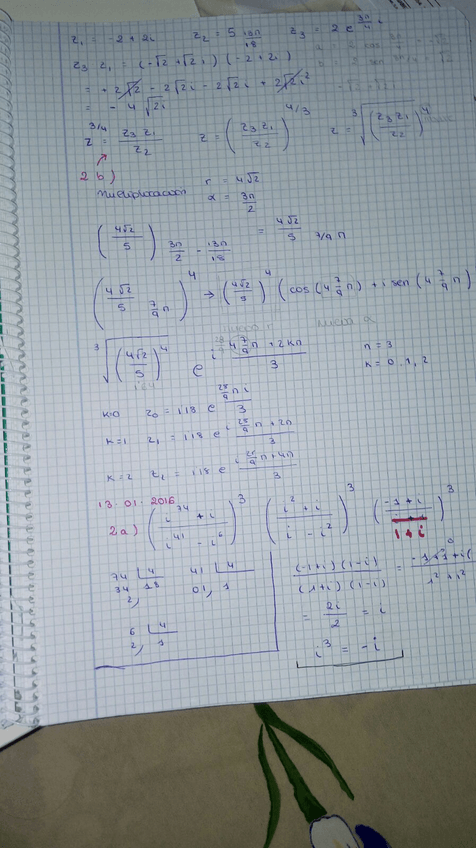 z₁ = -2 + 2i   z₂ = 5 13π/18   z₃ = 2 e^(3π/4 i)
z₃ z₁ = (-√2 + √2 i) (-2 + 2i)
= + 2√2 - 2√2i - 2√2i + 2√2i²
= - 4 √2i
z^(3/4) = z₃ z₁ / z₂   z = (z₃ z₁ / z₂)^(4/3)   z = ³√(z₃ z₁ / z₂)⁴
2 b)
Multiplicacion   r = 4√2
α = 3π/2
(4√2/5) 3π/2 - 13π/18 = 4√2/5 7/9 π
(4√2/5 7/9 π)⁴ → (4√2/5)⁴ (cos (4 7/9 π) + i sen (4 7/9 π)
nuevo r   nuevo α
³√(4√2/5)⁴ e^(i (4 7/9 π + 2kπ)/3)   n = 3
k = 0, 1, 2
k=0   z₀ = 1.18 e^(28/9 π i / 3)
k=1   z₁ = 1.18 e^(i (28/9 π + 2π)/3)
k=2   z₂ = 1.18 e^(i (28/9 π + 4π)/3)
13-01-2016
2a) (i⁷⁴ + i / i⁴¹ - i⁶)³   (i² + i / i - i²)³   (-1 + i / 1 + i)³
74 | 4   41 | 4   (-1+i) (1-i) / (1+i) (1-i) =
34 18   01, 1
2,
= 2i/2 = i
6 | 4
2, 1
i³ = -i